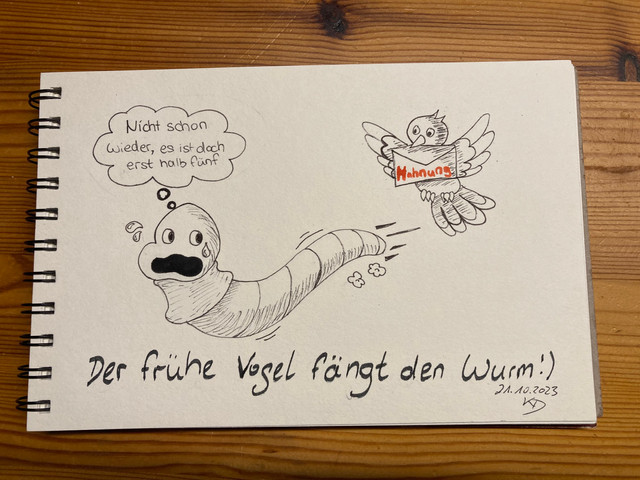 Nicht schon
wieder, es ist doch
erst halb fünf
Mahnung
Der frühe Vogel fängt den Wurm!)
21.10.2023